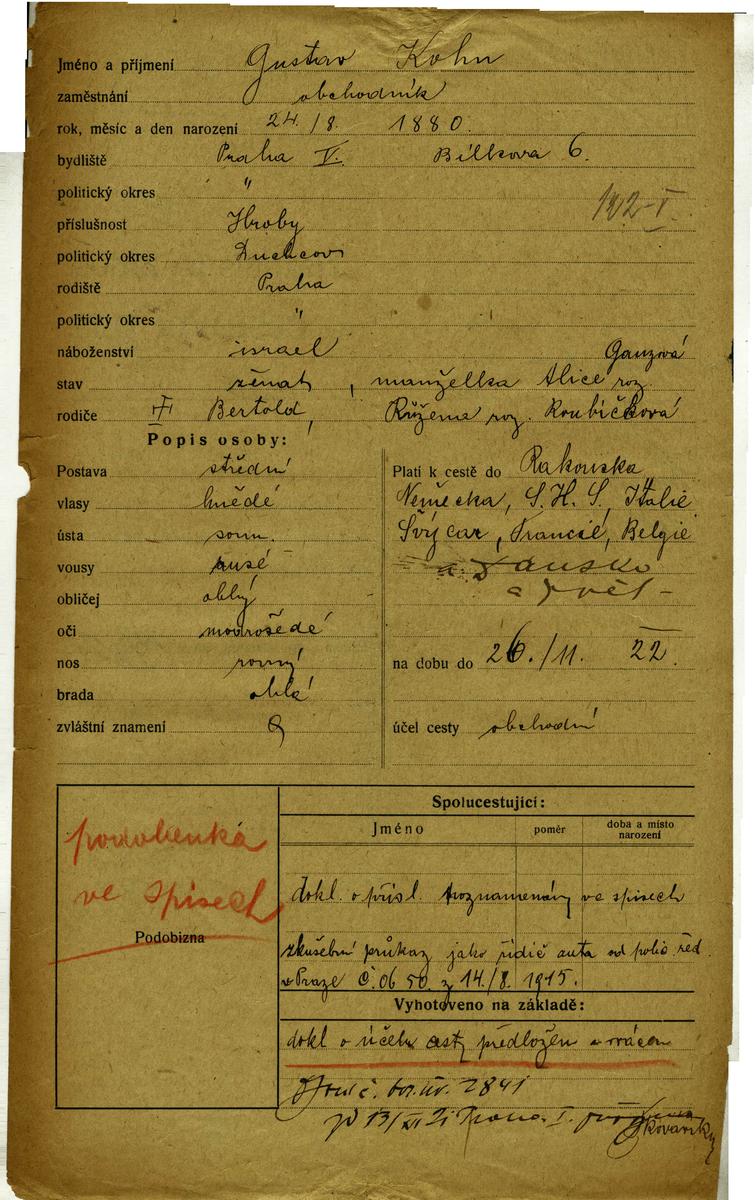 Jméno a příjmení Gustav Kohn
zaměstnání obchodník
rok, měsíc a den narození 24./8. 1880.
bydliště Praha V. Bílkova 6.
politický okres "
příslušnost Hroby
politický okres Duchcov
rodiště Praha
politický okres "
náboženství israel Ganzová
stav ženat, manželka Alice roz.
rodiče Bertold, Růžena roz. Roubíčková
Popis osoby:
Postava střední
vlasy hnědé
ústa soum.
vousy rusé
obličej oblý
oči modrošedé
nos rovný
brada oblá
zvláštní znamení
Platí k cestě do Rakouska
Německa, S.H.S, Italie
Švýcar, Francie, Belgie
a Dánsko
na dobu do 26./11. 22.
účel cesty obchodní
podobenka
ve spisech
Podobizna
Spolucestující:
Jméno poměr doba a místo narození
dokl. o přísl. poznamenán ve spisech
zkušební průkaz jako řidič auta od polic. řed.
v Praze č. 0650 z 14./8. 1915.
Vyhotoveno na základě:
dokl o účelu cesty předložen a vrácen
2841
Kovařík